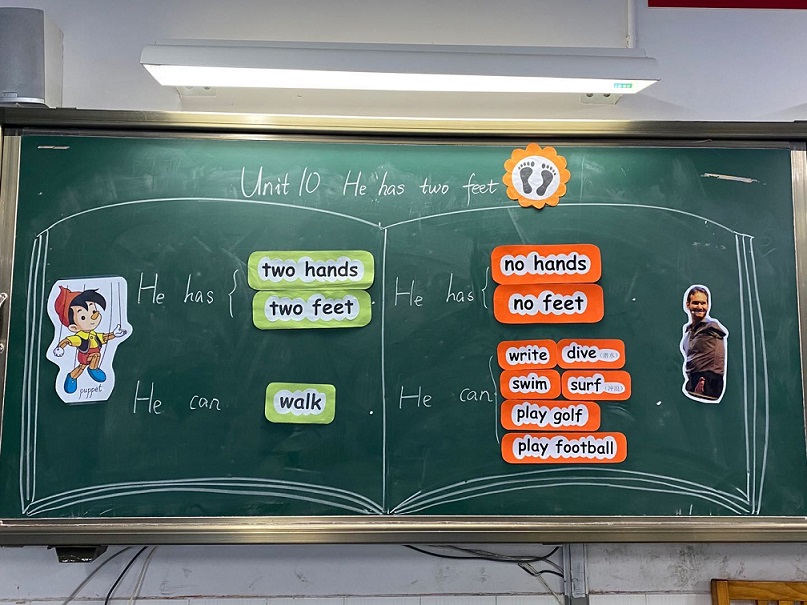 Unit 10 He has two feet
puppet
He has { two hands
two feet .
He can walk .
He has { no hands
no feet .
He can { write dive (潜水)
swim surf (冲浪)
play golf
play football .